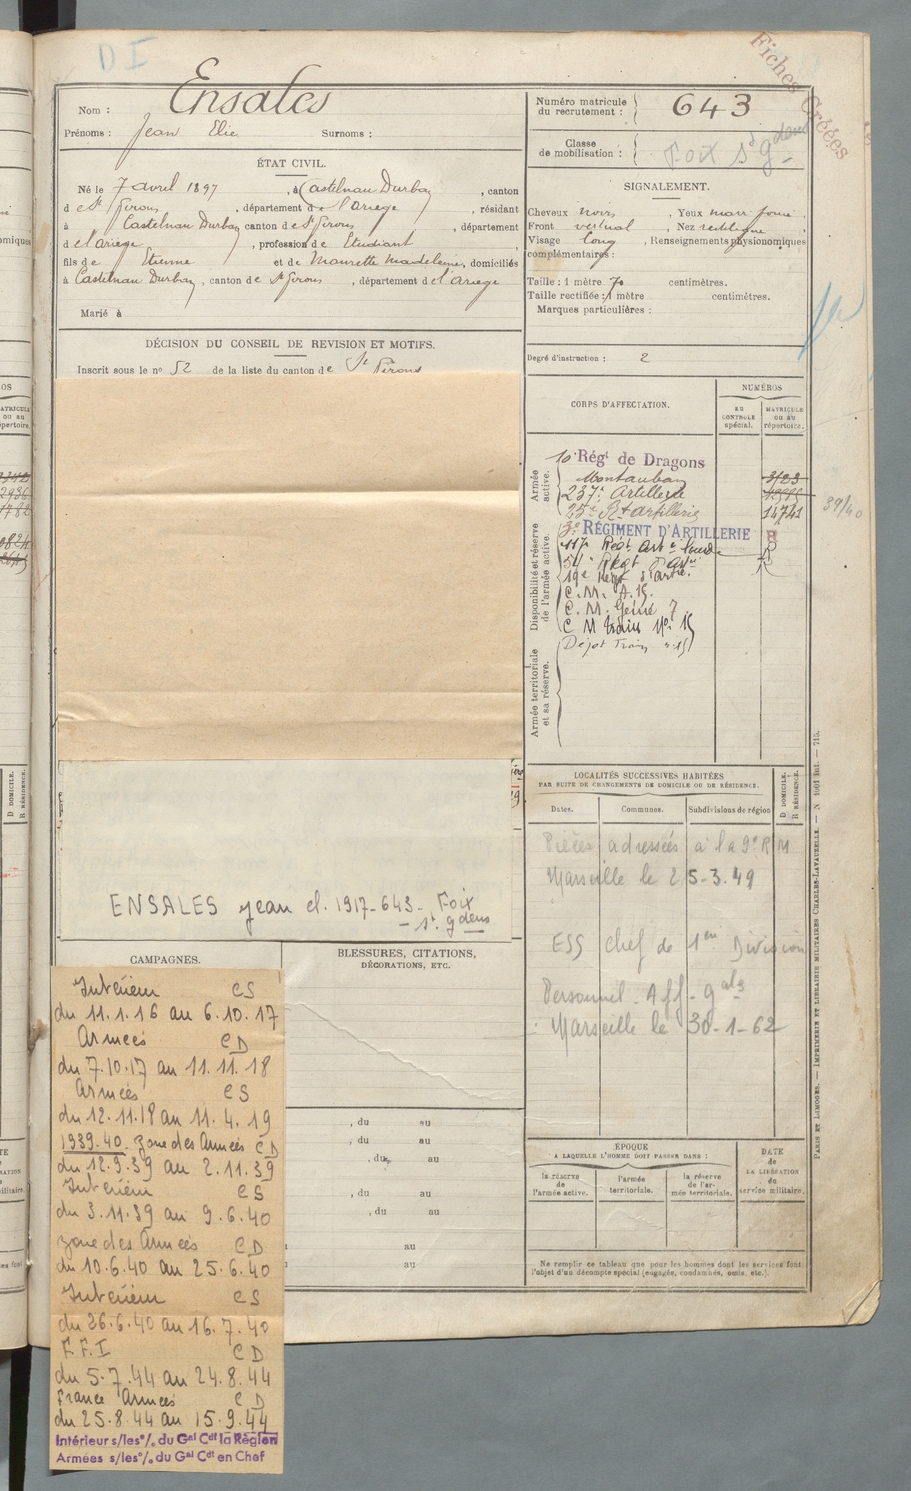 D I
Fiches Créées
Nom : Ensales
Prénoms : Jean Elie Surnoms :
ÉTAT CIVIL.
Né le 7 avril 1897, à Castelnau Durban, canton
d e St Girons, département de l'ariege, résidant
à Castelnau Durban canton de St Girons, département
d e l'ariege, profession de Etudiant
fils de Etienne et de Maurette Madeleine, domiciliés
à Castelnau Durban, canton de St Girons, département de l'ariege
Marié à
DÉCISION DU CONSEIL DE REVISION ET MOTIFS.
Inscrit sous le no 52 de la liste du canton de St Girons
ENSALES jean cl. 1917-643- Foix
- st. gdens
CAMPAGNES.
Intérieur CS
du 11.1.16 au 6.10.17
Armées CD
du 7.10.17 au 11.11.18
Armées CS
du 12.11.18 au 11.4.19
1939-40. zone des Armées CD
du 12.9.39 au 2.11.39
Intérieur CS
du 3.11.39 au 9.6.40
zone des Armées CD
du 10.6.40 au 25.6.40
Intérieur CS
du 26.6.40 au 16.7.40
F.F.I CD
du 5.7.44 au 24.8.44
France Armées CD
du 25.8.44 au 15.9.44
Intérieur s/les o/. du Gal Cdt la Région
Armées s/les o/. du Gal Cdt en Chef
BLESSURES, CITATIONS,
DÉCORATIONS, ETC.
, du au
, du au
, du au
, du au
, du au
au
au
Numéro matricule
du recrutement : 643
Classe
de mobilisation : Foix St gdens
SIGNALEMENT.
Cheveux noirs, Yeux marr foncé,
Front vertical, Nez rectiligne,
Visage long, Renseignements physionomiques
complémentaires :
Taille : 1 mètre 70 centimètres.
Taille rectifiée : 1 mètre centimètres.
Marques particulières :
Degré d'instruction : 2
CORPS D'AFFECTATION.
NUMÉROS
AU CONTROLE spécial.
MATRICULE ou au répertoire.
Armée active.
10e Régt de Dragons
Montauban
237e Artillerie
25e Rt artillerie 14741
Disponibilité et réserve de l'armée active.
3e RÉGIMENT D'ARTILLERIE R
117e Régt Arte lourde
54e Régt d'Arie
19e Régt d'artie.
C. M. A. 15.
C. M. Génie 7.
C M train No. 15
Dépot Train no 15
Armée territoriale et sa réserve.
39/40
LOCALITÉS SUCCESSIVES HABITÉES
PAR SUITE DE CHANGEMENTS DE DOMICILE OU DE RÉSIDENCE.
Dates. Communes. Subdivisions de région
D DOMICILE. R RÉSIDENCE.
Pièces adressées à la 9e R M
Marseille le 25-3.49
ESS chef de 1ère Division
Personnel - Aff - gales
Marseille le 30-1-62
ÉPOQUE
A LAQUELLE L'HOMME DOIT PASSER DANS :
la réserve de l'armée active.
l'armée territoriale.
la réserve de l'armée territoriale.
DATE de LA LIBÉRATION du service militaire.
Ne remplir ce tableau que pour les hommes dont les services font
l'objet d'un décompte spécial (engagés, condamnés, omis, etc.).
PARIS ET LIMOGES. — IMPRIMERIE ET LIBRAIRIE MILITAIRES CHARLES-LAVAUZELLE. — N 1001 Int. — 715.